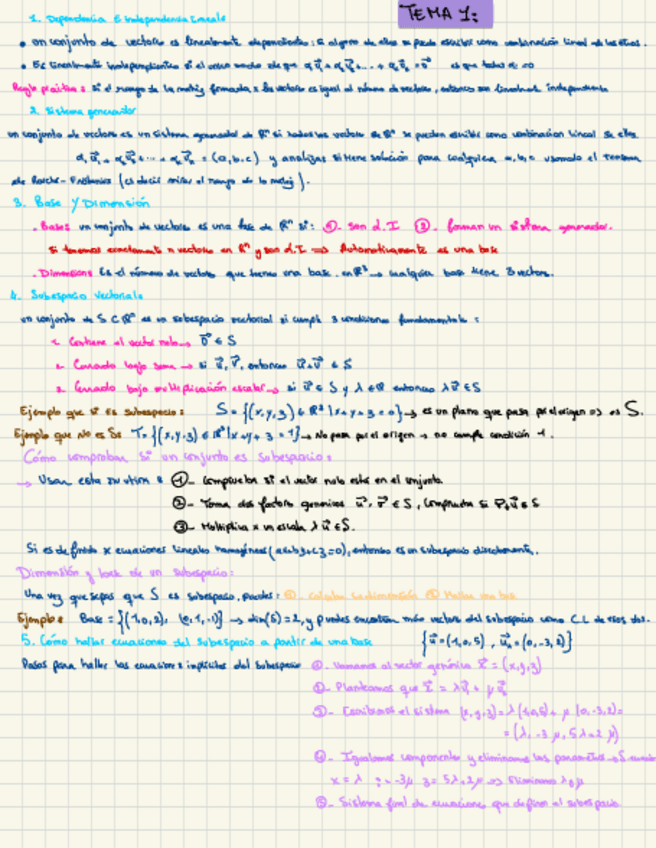 TEMA 1:
1. Dependencia E Independencia Lineal
• un conjunto de vectores es linealmente dependiente: si alguno de ellos se puede escribir como combinación lineal de los otros.
• Es linealmente independiente si el único modo de que α₁v⃗₁ + α₂v⃗₂ + ... + αₙv⃗ₙ = 0⃗ es que todos α = 0
Regla práctica: si el rango de la matriz formada x los vectores es igual al número de vectores, entonces son linealmente independiente
2. Sistema generador
un conjunto de vectores es un sistema generador de ℝⁿ si todos los vectores de ℝⁿ se pueden escribir como combinación lineal de ellos
= (a,b,c) y analizas si tiene solución para cualquier a,b,c usando el teorema
de Rouché-Frobenius (es decir mirar el rango de la matriz).
3. Base Y Dimensión
. Bases un conjunto de vectores es una base de ℝⁿ si: ①. son d.I ②. forman un sistema generador.
si tenemos exactamente n vectores en ℝⁿ y son d.I ⟹ Automáticamente es una base
. Dimensions Es el número de vectores que tiene una base. en ℝ³ → cualquier base tiene 3 vectores.
4. Subespacio Vectorial
un conjunto de S ⊂ ℝⁿ es un subespacio vectorial si cumple 3 condiciones fundamentales:
1. Contiene el vector nulo → 0⃗ ∈ S
2. Cerrado bajo suma → si u⃗, v⃗, entonces u⃗+v⃗ ∈ S
3. Cerrado bajo multiplicación escalar → si u⃗ ∈ S y λ ∈ ℝ entonces λu⃗ ∈ S
Ejemplo que si Es subespacio: S = {(x,y,z) ∈ ℝ³ | x+y+z=0} → es un plano que pasa por el origen => es S.
Ejemplo que no es S: T = {(x,y,z) ∈ ℝ³ | x+y+z=1} → No pasa por el origen → no cumple condición 1.
Cómo comprobar si un conjunto es subespacio:
→ Usar esta rutina: ①- Comprueba si el vector nulo está en el conjunto.
②- Toma dos vectores genéricos u⃗, v⃗ ∈ S, comprueba si ∈ S
③- Multiplica x un escalar λu⃗ ∈ S.
Si es definido x ecuaciones lineales homogéneas (ax+by+cz=0), entonces es un subespacio directamente.
Dimensión y base de un subespacio:
Una vez que sepas que S es subespacio, puedes: ①. Calcular su dimensión ② Hallar una base
Ejemplo: Base = {(1,0,2), (0,1,-1)} → dim(S)=2, y puedes encontrar más vectores del subespacio como C.L de esos dos.
5. Cómo hallar ecuaciones del subespacio a partir de una base {u⃗₁=(1,0,5), u⃗₂=(0,-3,2)}
Pasos para hallar las ecuaciones implícitas del subespacio ①- Llamamos al vector genérico x⃗ = (x,y,z)
②- Planteamos que x⃗ = λu⃗₁ + μu⃗₂
③- Escribimos el sistema (x,y,z) = λ(1,0,5) + μ(0,-3,2) =
= (λ, -3μ, 5λ+2μ)
④- Igualamos componentes y eliminamos los parámetros →
x = λ y = -3μ z = 5λ+2μ => Eliminamo λ y μ
⑤- Sistema final de ecuaciones que definen al subespacio.